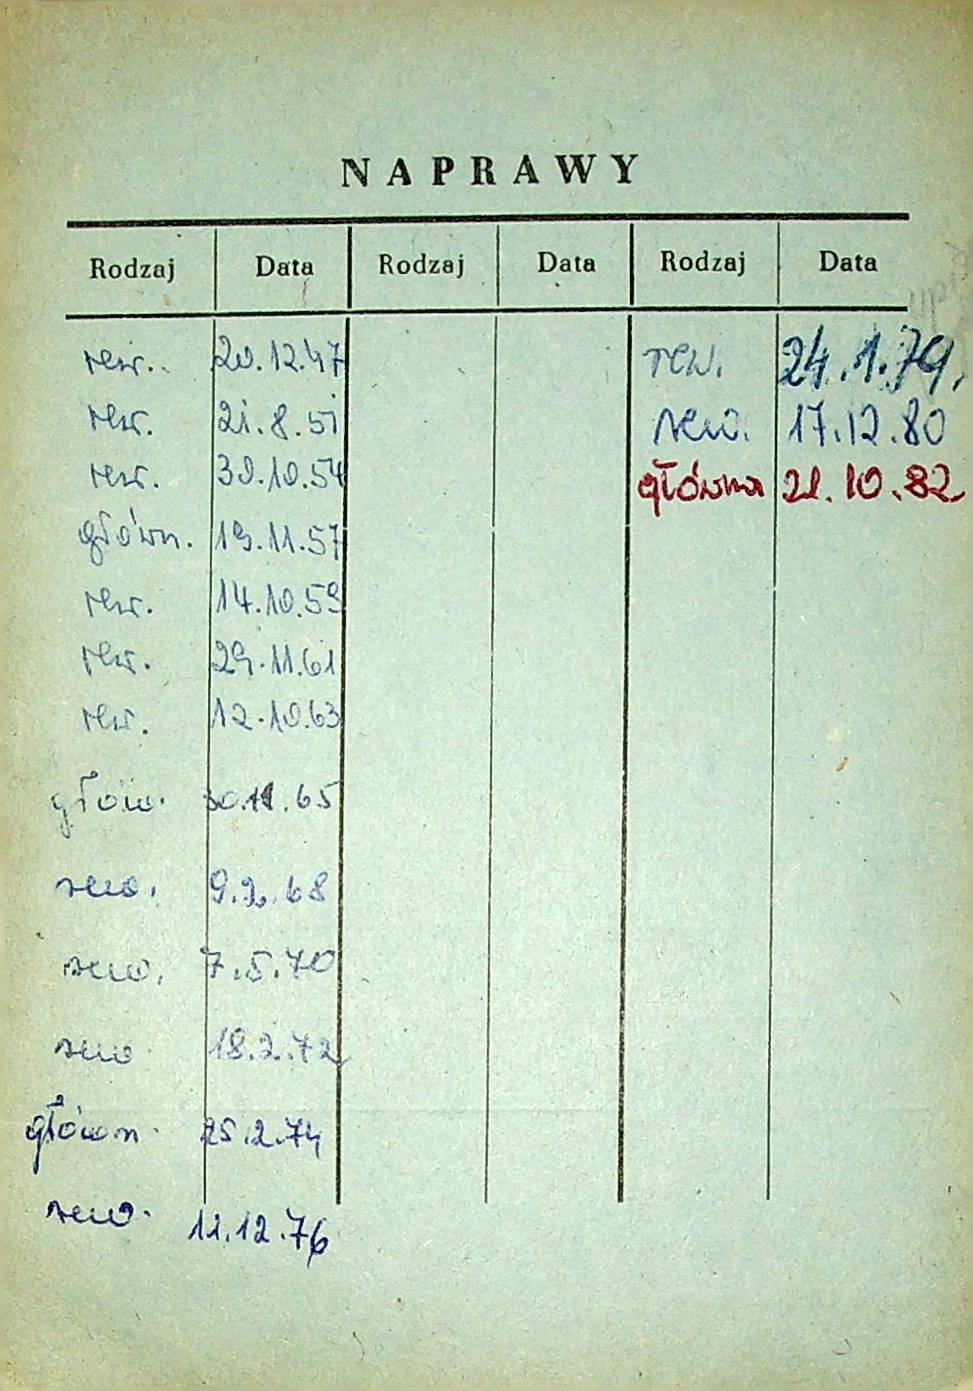 NAPRAWY
Rodzaj Data Rodzaj Data Rodzaj Data
rew. 20.12.47 rew. 24.1.79.
rew. 21.8.51 rew. 17.12.80
rew. 30.10.54 główna 21.10.82
główn. 19.11.57
rew. 14.10.59
rew. 29.11.61
rew. 12.10.63
głów. 30.11.65
rew. 9.2.68
rew. 7.5.70
rew 18.2.72
główn. 25.2.74
rew. 11.12.76